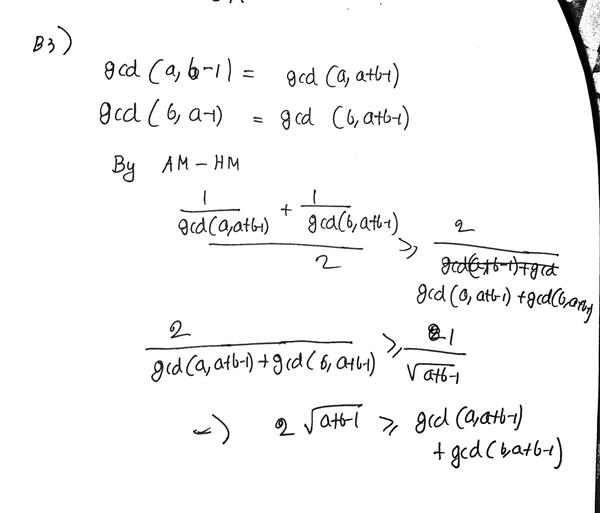 B3)
gcd (a, b-1) = gcd (a, a+b-1)
gcd (b, a-1) = gcd (b, a+b-1)
By AM - HM
1/gcd(a,a+b-1) + 1/gcd(b,a+b-1) / 2 ≥ 2 / gcd(a, a+b-1) + gcd(b,a+b-1)
2 / gcd(a, a+b-1) + gcd(b, a+b-1) ≥ 1 / √a+b-1
↔ 2 √a+b-1 ≥ gcd (a,a+b-1)
+ gcd (b,a+b-1)